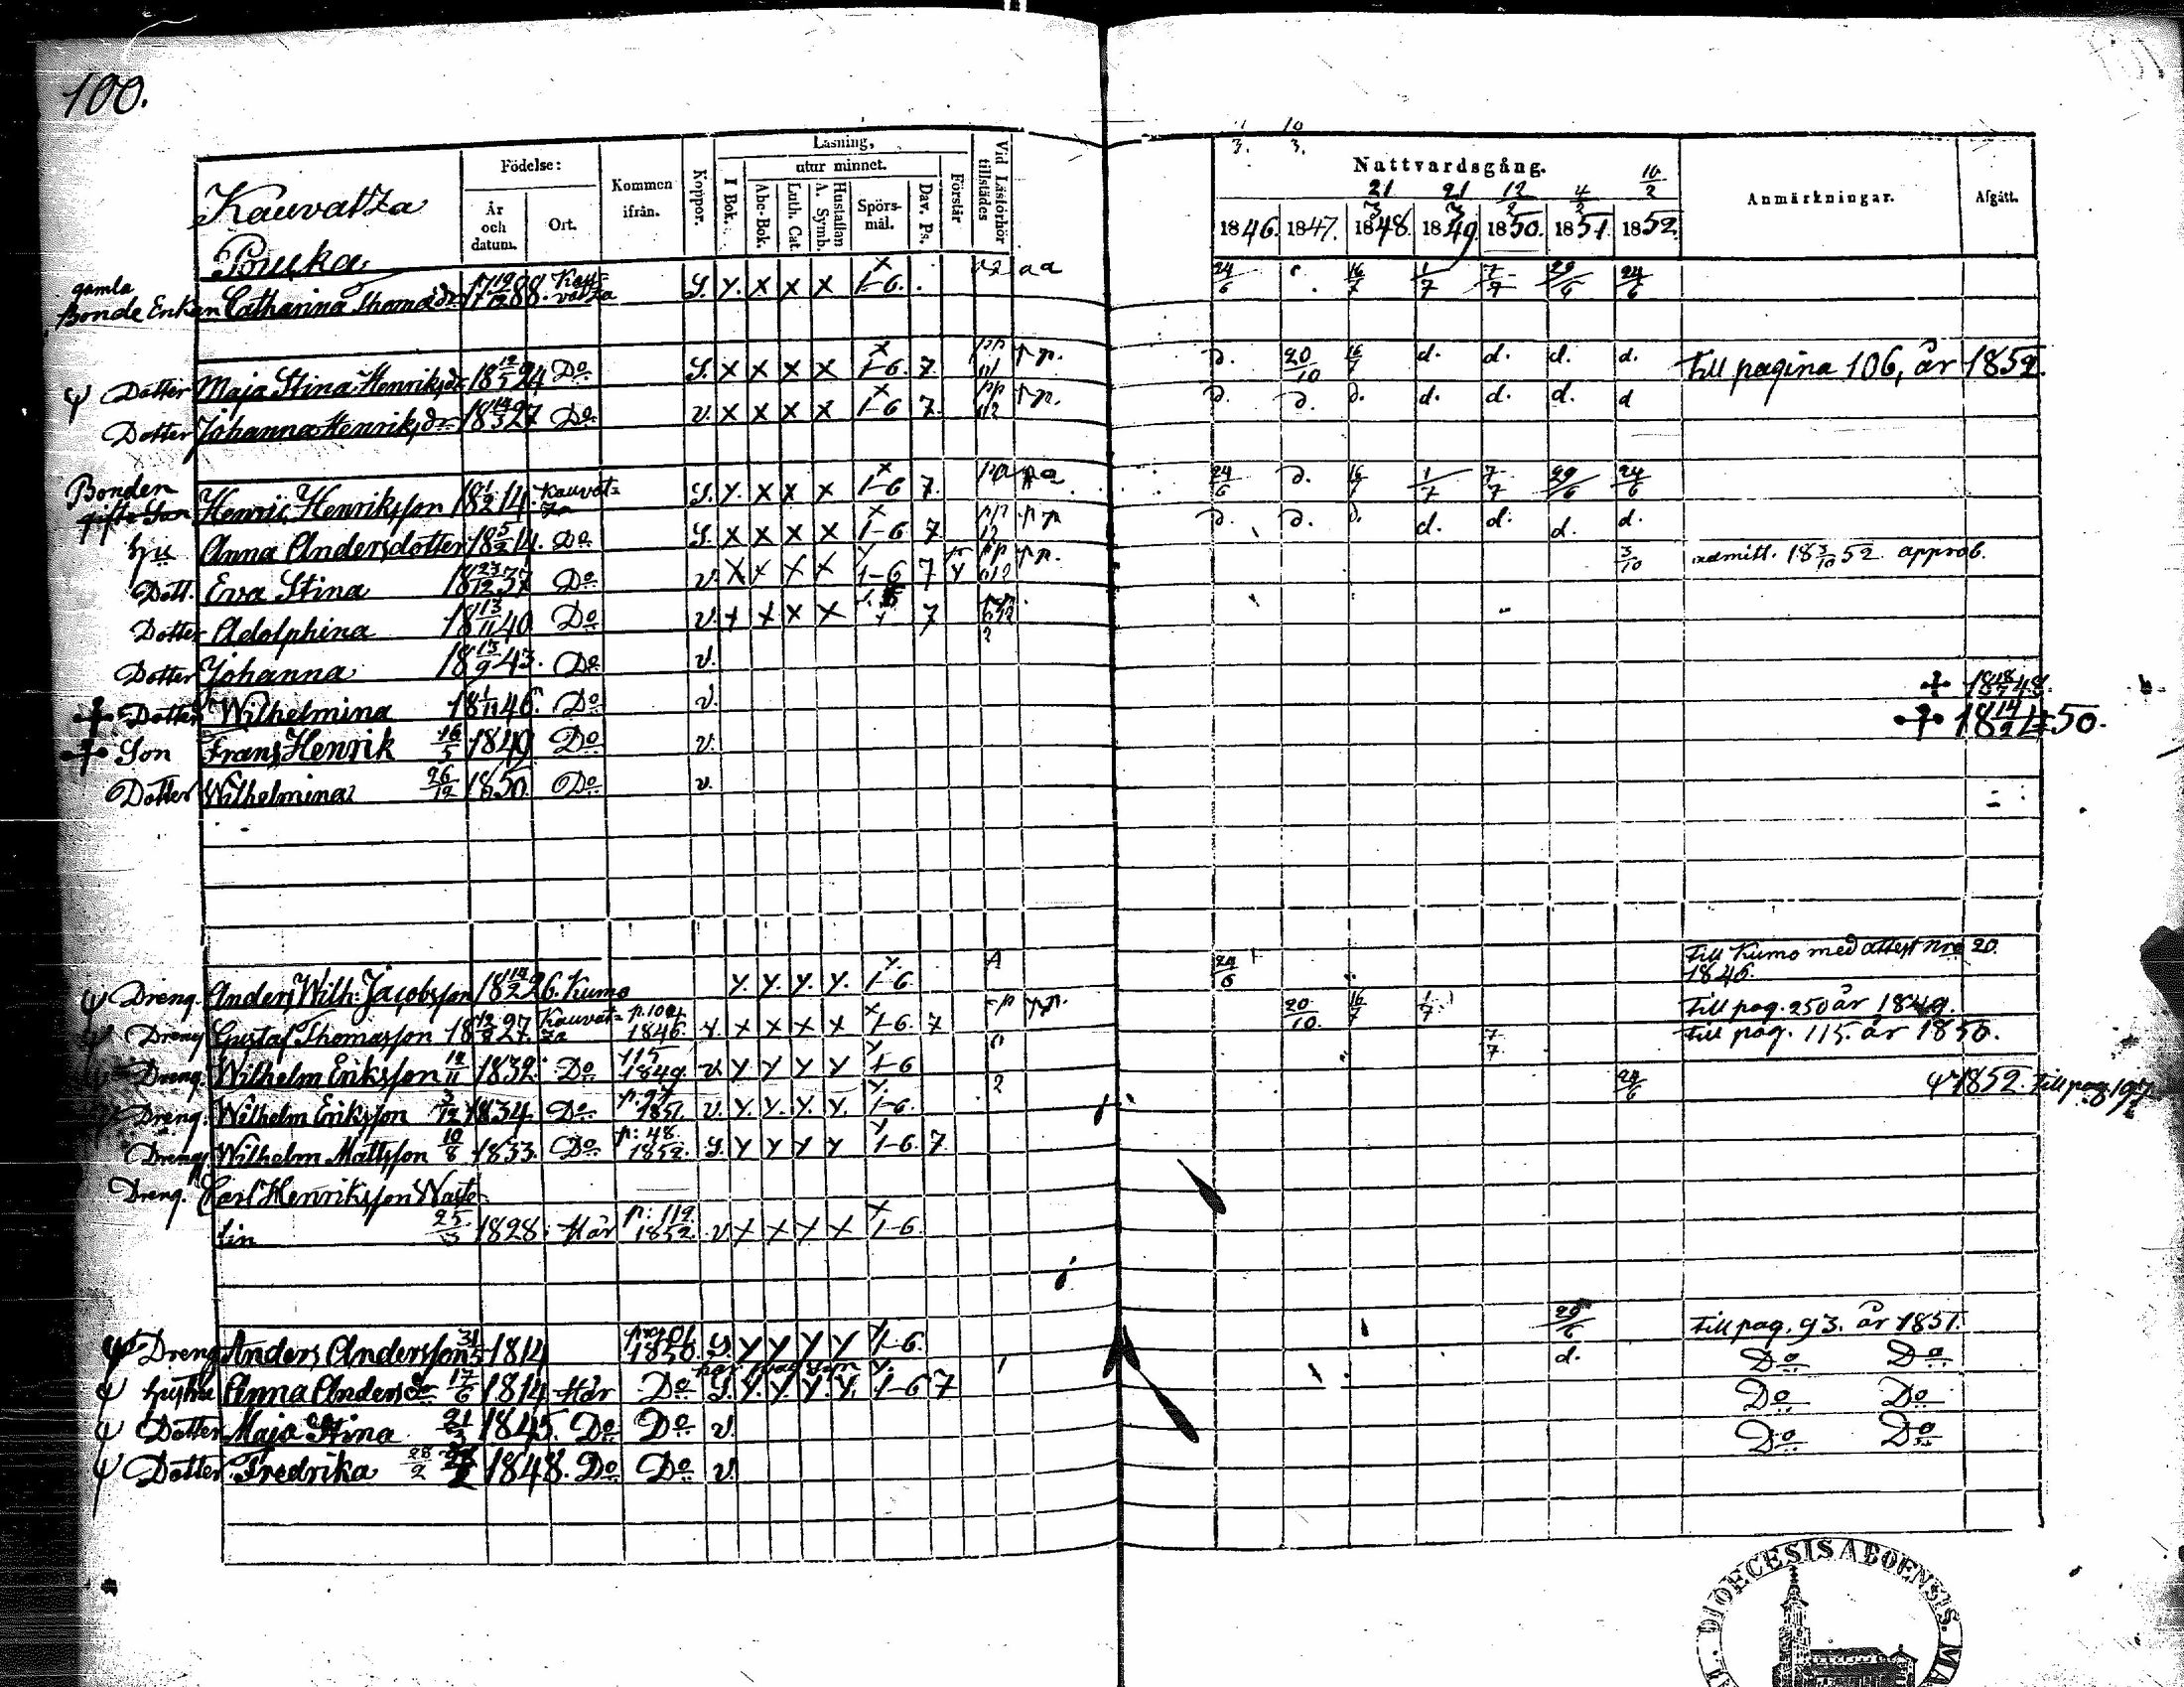 100.
Kauvatza
Födelse:
Kommen ifrån.
Koppor.
Läsning,
utur minnet.
I Bok.
Abc-Bok.
Luth. Cat.
A. Symb.
Hustaflan
Spörsmål.
Dav. Ps.
Förstår
Vid Läsförhör tillstädes
År och datum.
Ort.
Nattvardsgång.
Anmärkningar.
Afgått.
21/3 21/3 12/2 4/2 10/2
1846. 1847. 1848. 1849. 1850. 1851. 1852.
gamla
Bonde Enkan Catharina Thomasdr 17 19/12 88. Kauvatza S. y. x x x 1-6. aa 24/6 16/7 1/7 7/7 29/6 24/6
Dotter Maja Stina Henriksdr 18 12/5 24 Do S. x x x x 1-6. 7 d. 20/10 16/7 d. d. d. d. Till pagina 106, år 1852.
Dotter Johanna Henriksdr 18 14/3 27 Do v. x x x x 1-6 7. d. d. d. d. d. d. d
Bonden
gifte Son Henric Henriksson 18 1/2 14. Kauvatza S. y. x x x 1-6 7. 24/6 d. 16/7 1/7 7/7 29/6 24/6
Hu Anna Andersdotter 18 5/2 14. Do S. x x x x 1-6 7 d. d. d. d. d. d. d.
Dott. Eva Stina 18 23/12 37 Do v. x x x x 1-6 7 3/10 admitt. 18 3/10 52 approb.
Dotter Adolphina 18 13/11 40 Do v. x x x x 7
Dotter Johanna 18 13/9 43. Do v.
Dotter Wilhelmina 18 1/11 46. Do v. 18 18/7 48.
Son Frans Henrik 16/5 1849 Do v. 18 14/2 50.
Dotter Wilhelmina 26/12 1850 Do v.
Dreng. Anders Wilh. Jacobsson 18 14/2 26. Kumo y. y. y. y. 1-6 A 24/6 Till Kumo med attest nro 20. 1846.
Dreng Gustaf Thomasson 18 27. Kauvatza p. 104 1846. x x x x 1-6. 7 20/10. 16/7 1/7 Till pag. 250 år 1849.
Dreng. Wilhelm Eriksson 1832. Do 115 1849. v. y y y y 1-6 7/7 Till pag. 115. år 1850.
Dreng. Wilhelm Eriksson 3/12 1834. Do p. 97 1851. v. y. y. y. y. 1-6. 2 24/6 1852. Till pag.
Dreng. Wilhelm Mattsson 10/8 1833. Do p: 48 1852. S. y y y y 1-6 7.
Dreng. Carl Henriksson
lin 25/3 1828. Här p: 119. 1852. v x x x x 1-6.
Dreng Anders Andersson 31/5 1814 1850. S. y y y y 1-6. 29/6 Till pag. 93. år 1851.
hustru Anna Andersdr 17/6 1814 Här Do S. y. y. y. y. 1-6 7 d. Do Do
Dotter Maja Stina 1845. Do Do v. Do Do
Dotter Fredrika 28/2 1848. Do Do v. Do Do
DIOECESIS ABOENSIS.